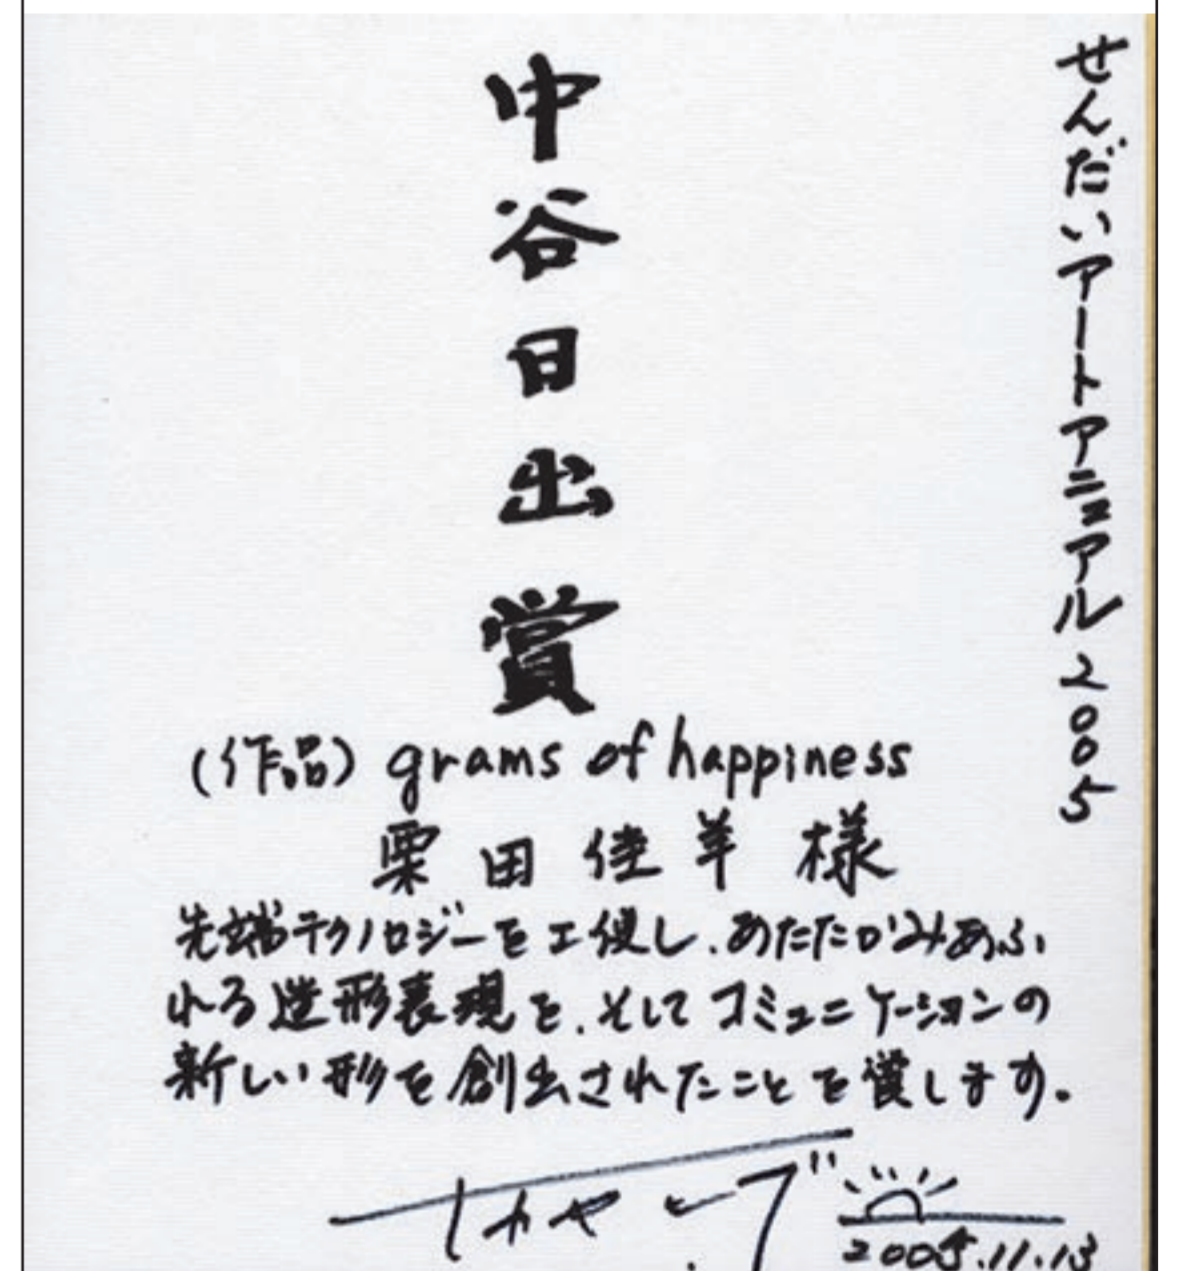 せんだいアートアニュアル2005
中谷日出賞
(作品) grams of happiness
栗田佳羊様
先端テクノロジーを工使し、あたたかみあふ
れる造形表現を、そしてコミュニケーションの
新しい形を創出されたことを賞します。
2005.11.13